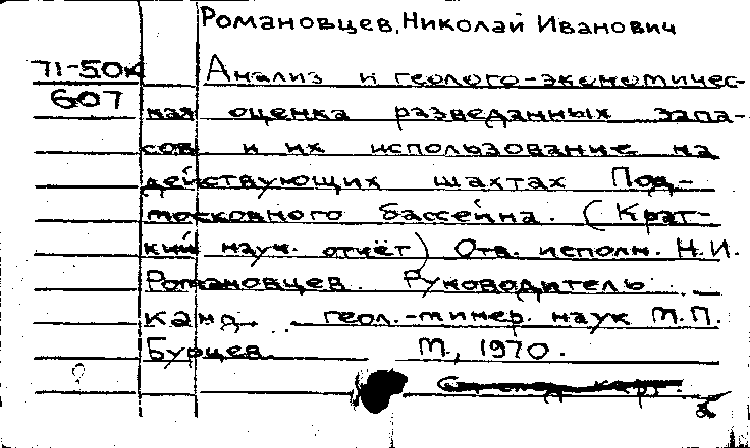 Романовцев, Николай Иванович
71-50к Анализ и геолого-экономичес-
607 кая оценка разведанных запа-
сов и их использование на
действующих шахтах Под-
московного бассейна. (Крат-
кий науч. отчёт) Отв. исполн. Н.И.
Романовцев. Руководитель
канд. геол.-минер. наук М.П.
Бурцев. М., 1970.